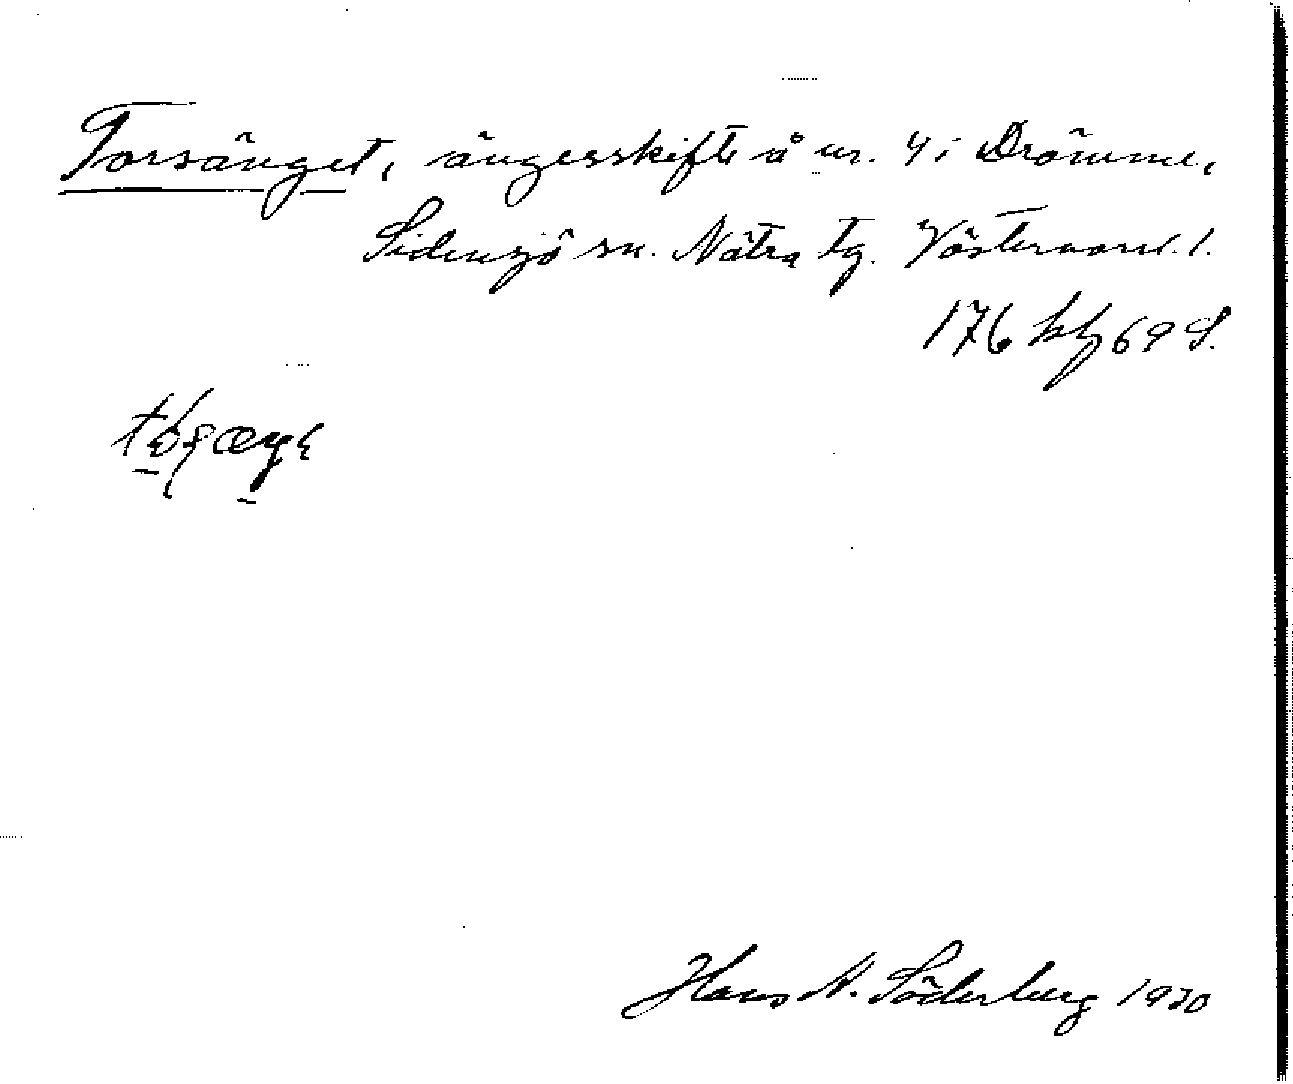 Torsänget, ängesskifte å nr. 4 i Drömme,
Sidensjö sn. Nätra tg. Västernorrl. l.
176 69 S.
Hans N. Söderberg 1930